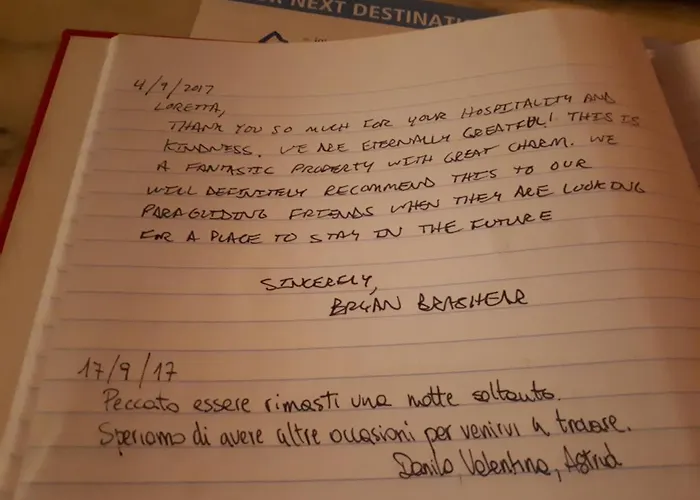 R NEXT DESTINATI
4/9/2017
LORETTA,
THANK YOU SO MUCH FOR YOUR HOSPITALITY AND
KINDNESS. WE ARE ETERNALLY GREATFUL! THIS IS
A FANTASTIC PROPERTY WITH GREAT CHARM. WE
WILL DEFINITELY RECOMMEND THIS TO OUR
PARAGLIDING FRIENDS WHEN THEY ARE LOOKING
FOR A PLACE TO STAY IN THE FUTURE
SINCERELY,
BRYAN BRASHEAR
17/9/17
Peccato essere rimasti una notte soltanto.
Speriamo di avere altre occasioni per venirvi a trovare.
Danilo, Valentina, Astrid